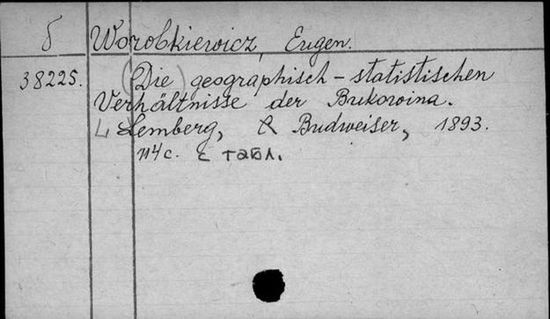 б Worobkiewicz, Eugen.
38225. (Die) geographisch-statistischen
Verhältnisse der Bukowina.
Lemberg, Budweiser, 1893.
114 с. с табл.